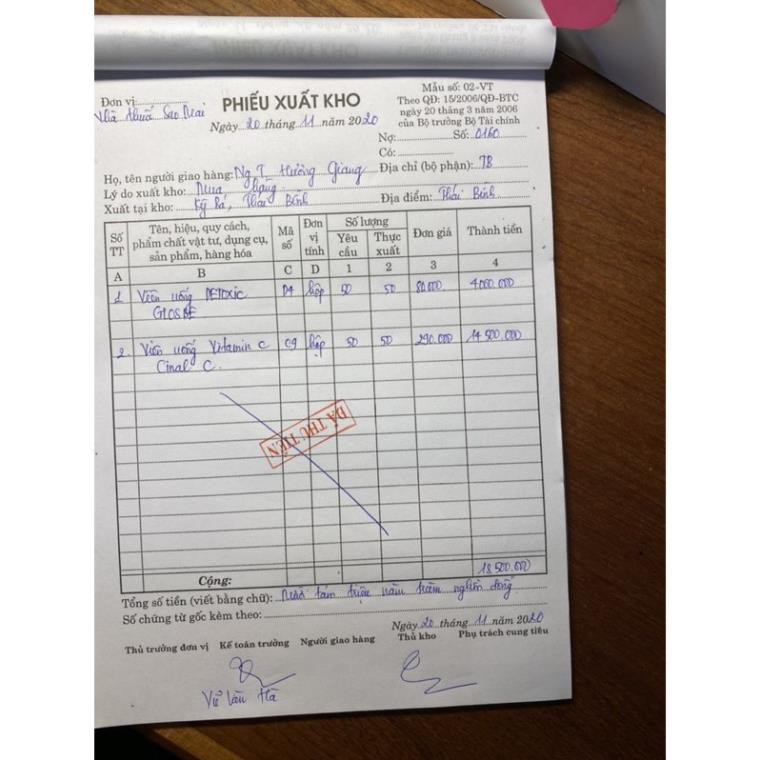 Mẫu số: 02-VT
Đơn vị:
PHIẾU XUẤT KHO
Theo QĐ: 15/2006/QĐ-BTC
Nhà thuốc Sao Mai
ngày 20 tháng 3 năm 2006
Ngày 20 tháng 11 năm 2020
của Bộ trưởng Bộ Tài chính
Nợ: Số: 0160
Có:
Họ, tên người giao hàng: Ng T Hương Giang Địa chỉ (bộ phận): TB
Lý do xuất kho: Mua hàng
Xuất tại kho: Kỳ Bá, Thái Bình Địa điểm: Thái Bình
Số TT Tên, hiệu, quy cách, phẩm chất vật tư, dụng cụ, sản phẩm, hàng hóa Mã số Đơn vị tính Số lượng Yêu cầu Thực xuất Đơn giá Thành tiền
A B C D 1 2 3 4
1 Viên uống DETOXIC D4 hộp 50 50 80.000 4.000.000
2. Viên uống Vitamin C C9 hộp 50 50 290.000 14 500.000
Cinal C.
ĐÃ THU TIỀN
Cộng: 18 500.000
Tổng số tiền (viết bằng chữ): Mười tám triệu năm trăm nghìn đồng
Số chứng từ gốc kèm theo:
Ngày 20 tháng 11 năm 2020
Thủ trưởng đơn vị Kế toán trưởng Người giao hàng Thủ kho Phụ trách cung tiêu
Hà